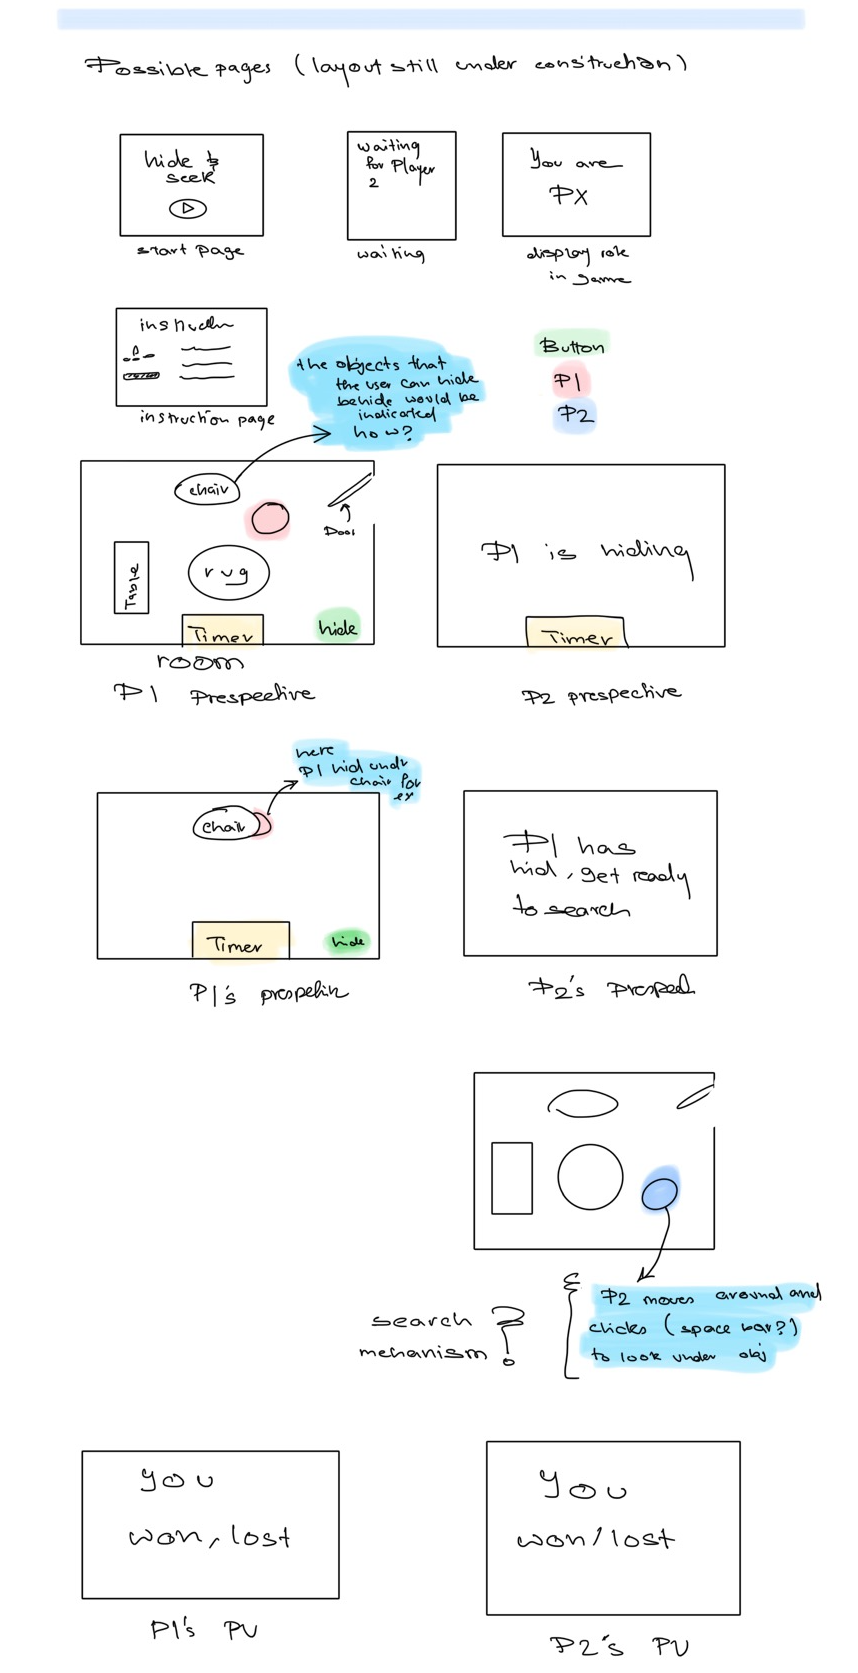 Possible pages (layout still under construction)
hide &
seek
start page
waiting
for Player
2
waiting
You are
PX
display role
in game
instruction page
Button
P1
P2
the objects that
the user can hide
behide would be
indicated
how?
chair
Door
Table
rug
Timer
hide
room
P1 Prespective
P1 is hiding
Timer
P2 prespective
here
P1 hid undr
chair for
ex
chair
Timer
hide
P1's
P1 has
hid, get ready
to search
P2's
P2 moves around and
clicks (space bar?)
to look under obj
search
mehanism ?
you
won, lost
P1's PV
You
won/lost
P2's PV